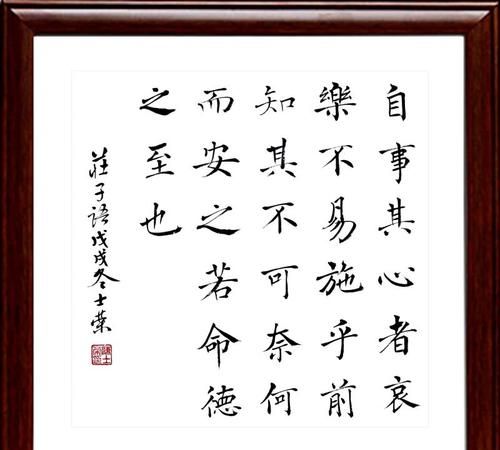 自事其心者哀
樂不易施乎前
知其不可奈何
而安之若命德
之至也
莊子語戊戌冬士荣